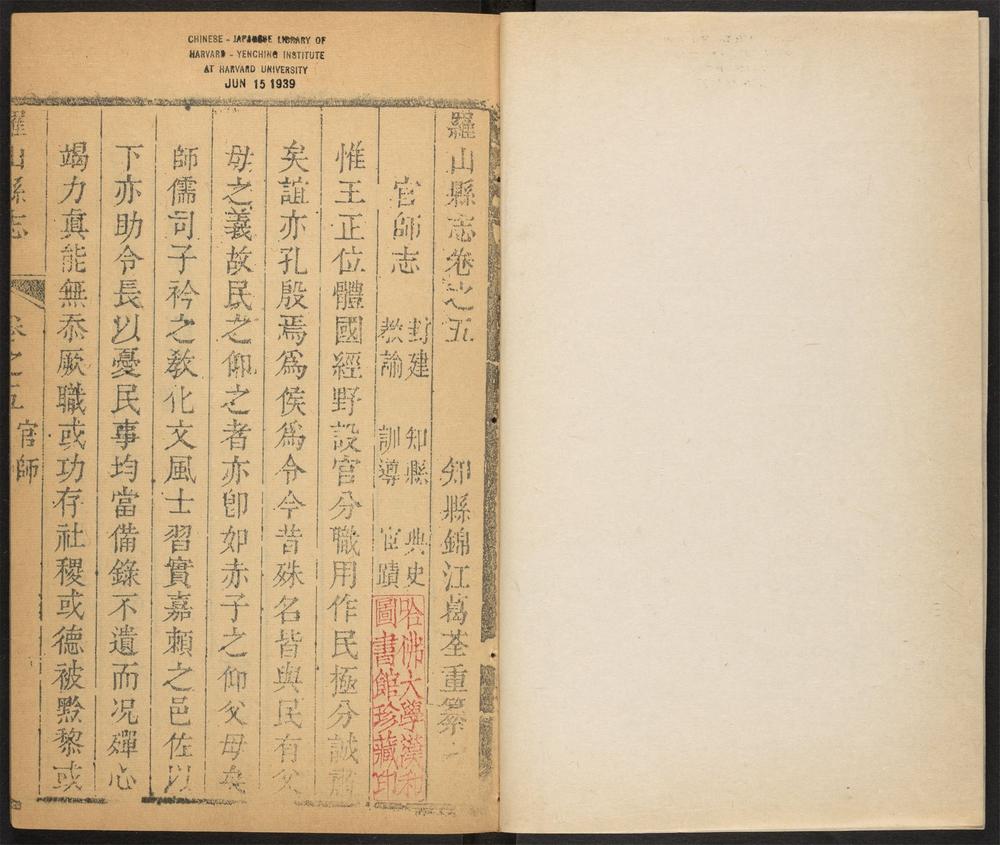 CHINESE - JAPANESE LIBRARY OF
HARVARD - YENCHING INSTITUTE
AT HARVARD UNIVERSITY
JUN 15 1939
羅山縣志卷之五
知縣錦江葛荃重纂
官師志
封建 知縣 典史
教諭 訓導 宦蹟
哈佛大學漢和
圖書館珍藏印
惟王正位體國經野設官分職用作民極分誠
矣誼亦孔殷焉爲侯爲令今昔殊名皆與民有父
母之義故民之仰之者亦卽如赤子之仰父母矣
師儒司子衿之教化文風士習實嘉賴之邑佐以
下亦助令長以憂民事均當備錄不遺而况殫心
竭力眞能無忝厥職或功存社稷或德被黔黎或
羅山縣志
卷之五
官師